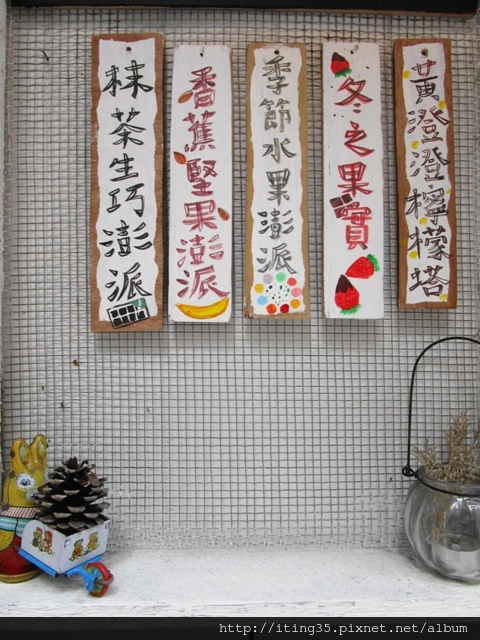 抹茶生巧澎派
香蕉堅果澎派
季節水果澎派
冬之果實
黃澄澄檸檬塔
http://iting35.pixnet.net/album